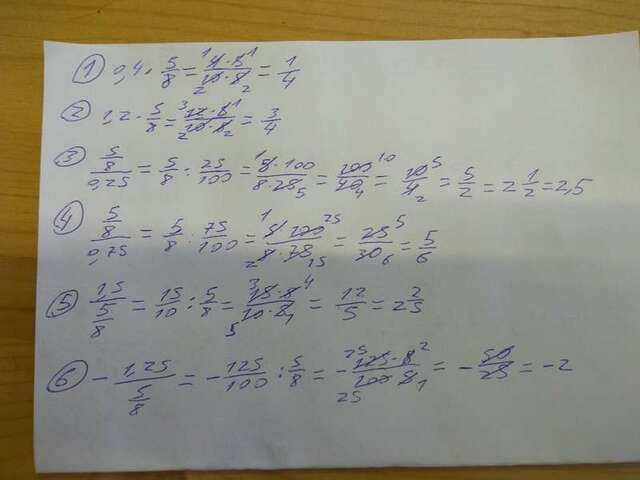 ① 0,4 · 5/8 = (4·5)/(10·8) = 1/4
② 1,2 · 5/8 = (12·5)/(10·8) = 3/4
③ (5/8)/0,25 = 5/8 : 25/100 = (5·100)/(8·25) = 100/40 = 10/4 = 5/2 = 2 1/2 = 2,5
④ (5/8)/0,75 = 5/8 : 75/100 = (5·100)/(8·75) = 25/30 = 5/6
⑤ 1,5/(5/8) = 15/10 : 5/8 = (15·8)/(10·5) = 12/5 = 2 2/5
⑥ - 1,25/(5/8) = - 125/100 : 5/8 = - (125·8)/(100·5) = - 50/25 = -2